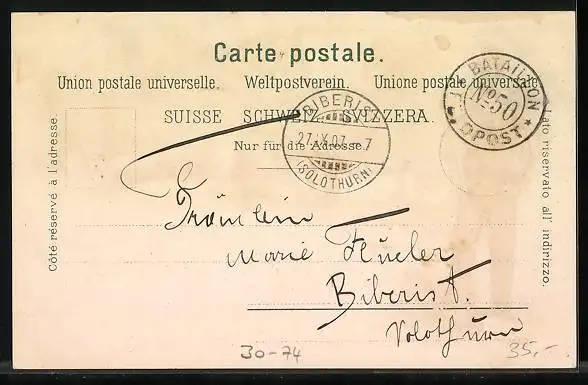 Carte postale.
Union postale universelle. Weltpostverein. Unione postale universale
SUISSE SCHWEIZ SVIZZERA.
Nur für die Adresse.
Côté réservé à l'adresse.
Lato riservato all' indirizzo.
BATAILLON
No 50
DPOST
BIBERIST
27.IX.07. 7
(SOLOTHURN)
Fräulein
Marie
Biberist.
Solothurn
30-74
35,-